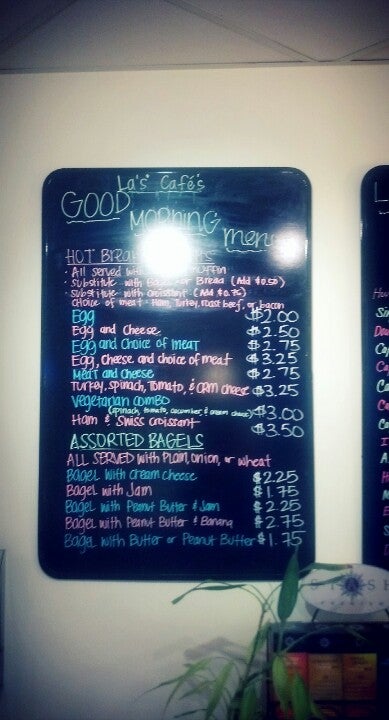 La's' Café's
GOOD
MORNING
menu
HOT
· All served with muffin
· substitute with Bagel or Bread (Add $0.50)
· substitute with croissant (Add $0.75)
choice of meat - Ham, Turkey, roast beef, or bacon
Egg $2.00
Egg and Cheese $2.50
Egg and choice of meat $2.75
Egg, cheese and choice of meat $3.25
Meat and cheese $2.75
Turkey, spinach, Tomato, & CRM cheese $3.25
Vegetarian combo
(spinach, tomato, cucumber & cream cheese) $3.00
Ham & Swiss croissant $3.50
ASSORTED BAGELS
ALL SERVED with Plain, onion, or wheat
Bagel with cream cheese $2.25
Bagel with Jam $1.75
Bagel with Peanut Butter & Jam $2.25
Bagel with Peanut Butter & Banana $2.75
Bagel with Butter or Peanut Butter $1.75